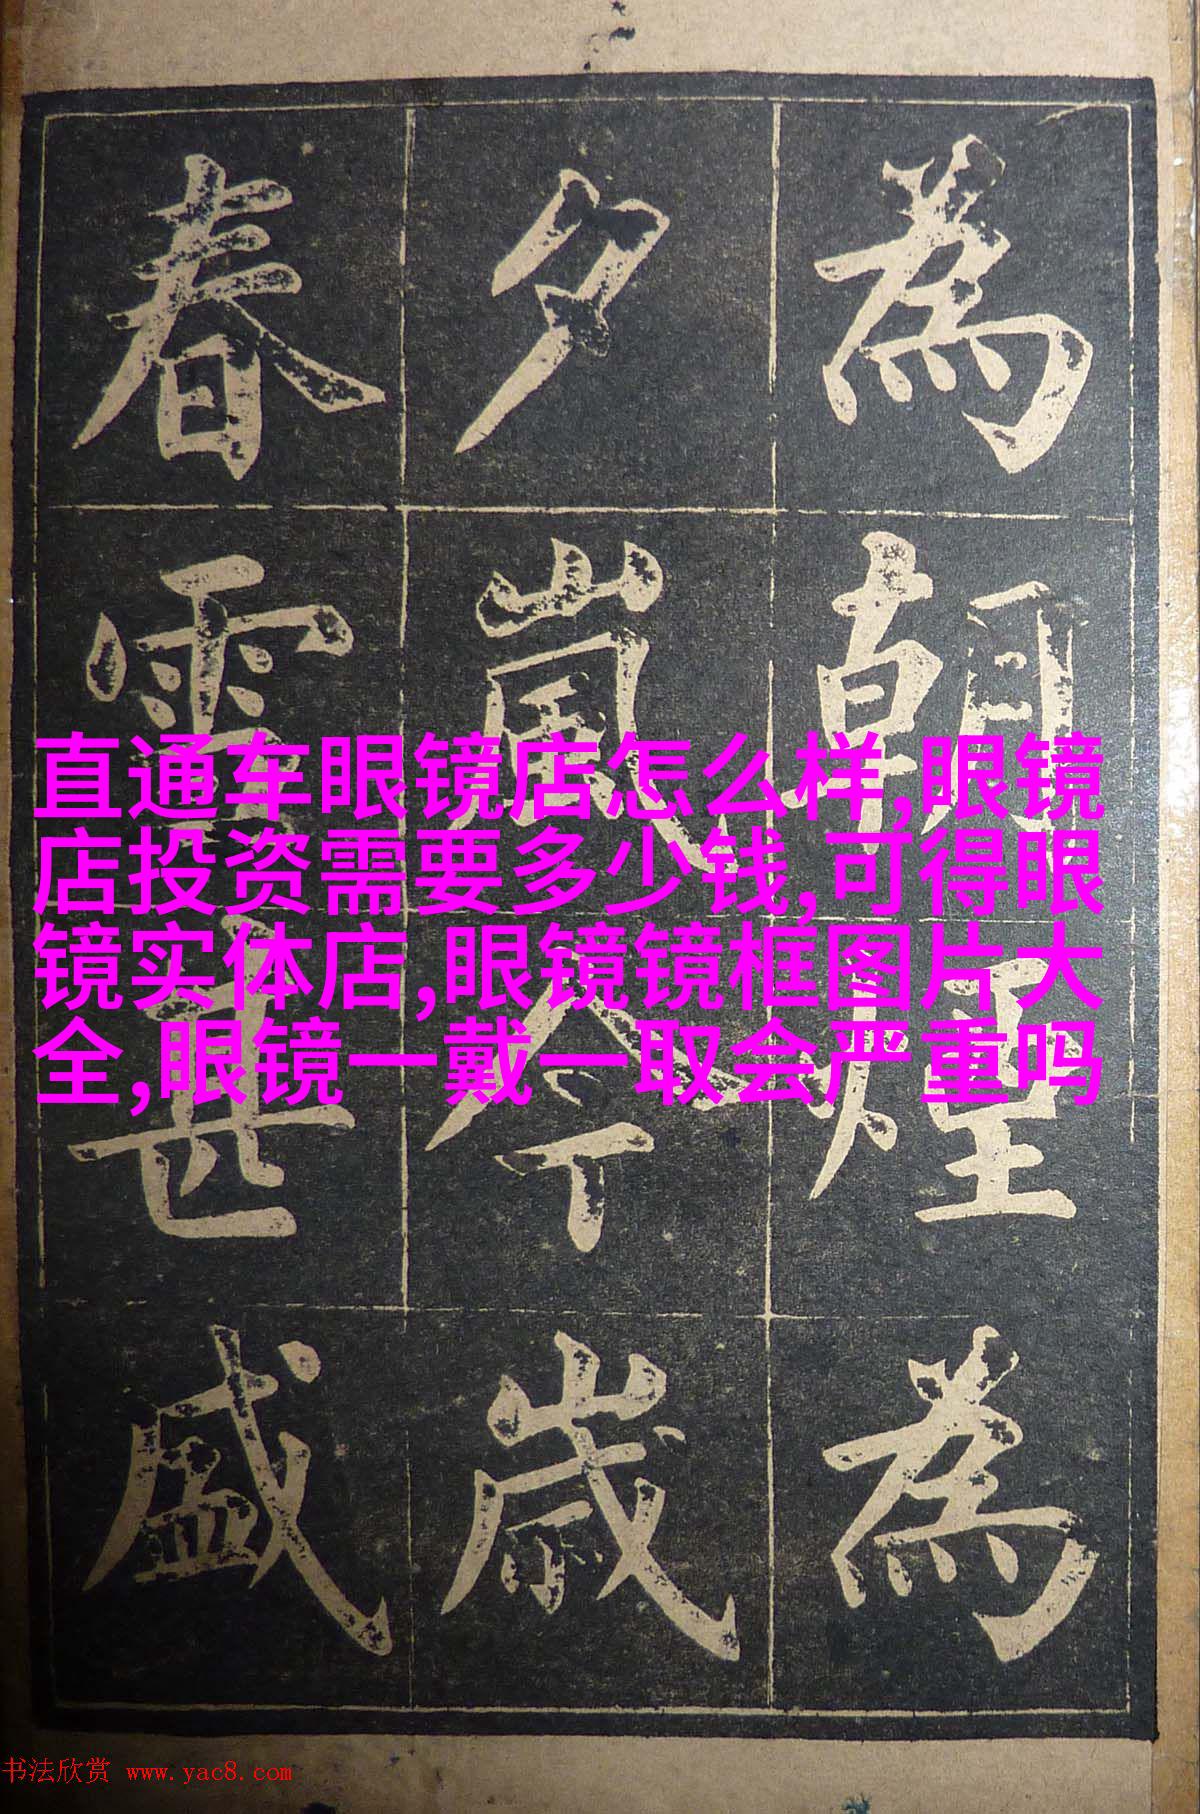 為朝煙為
夕嵐今歲
春雪甚盛
直通车眼镜店怎么样,眼镜
店投资需要多少钱,可得眼
镜实体店,眼镜镜框图片大
全,眼镜一戴一取会严重吗
书法欣赏 www.yac8.com